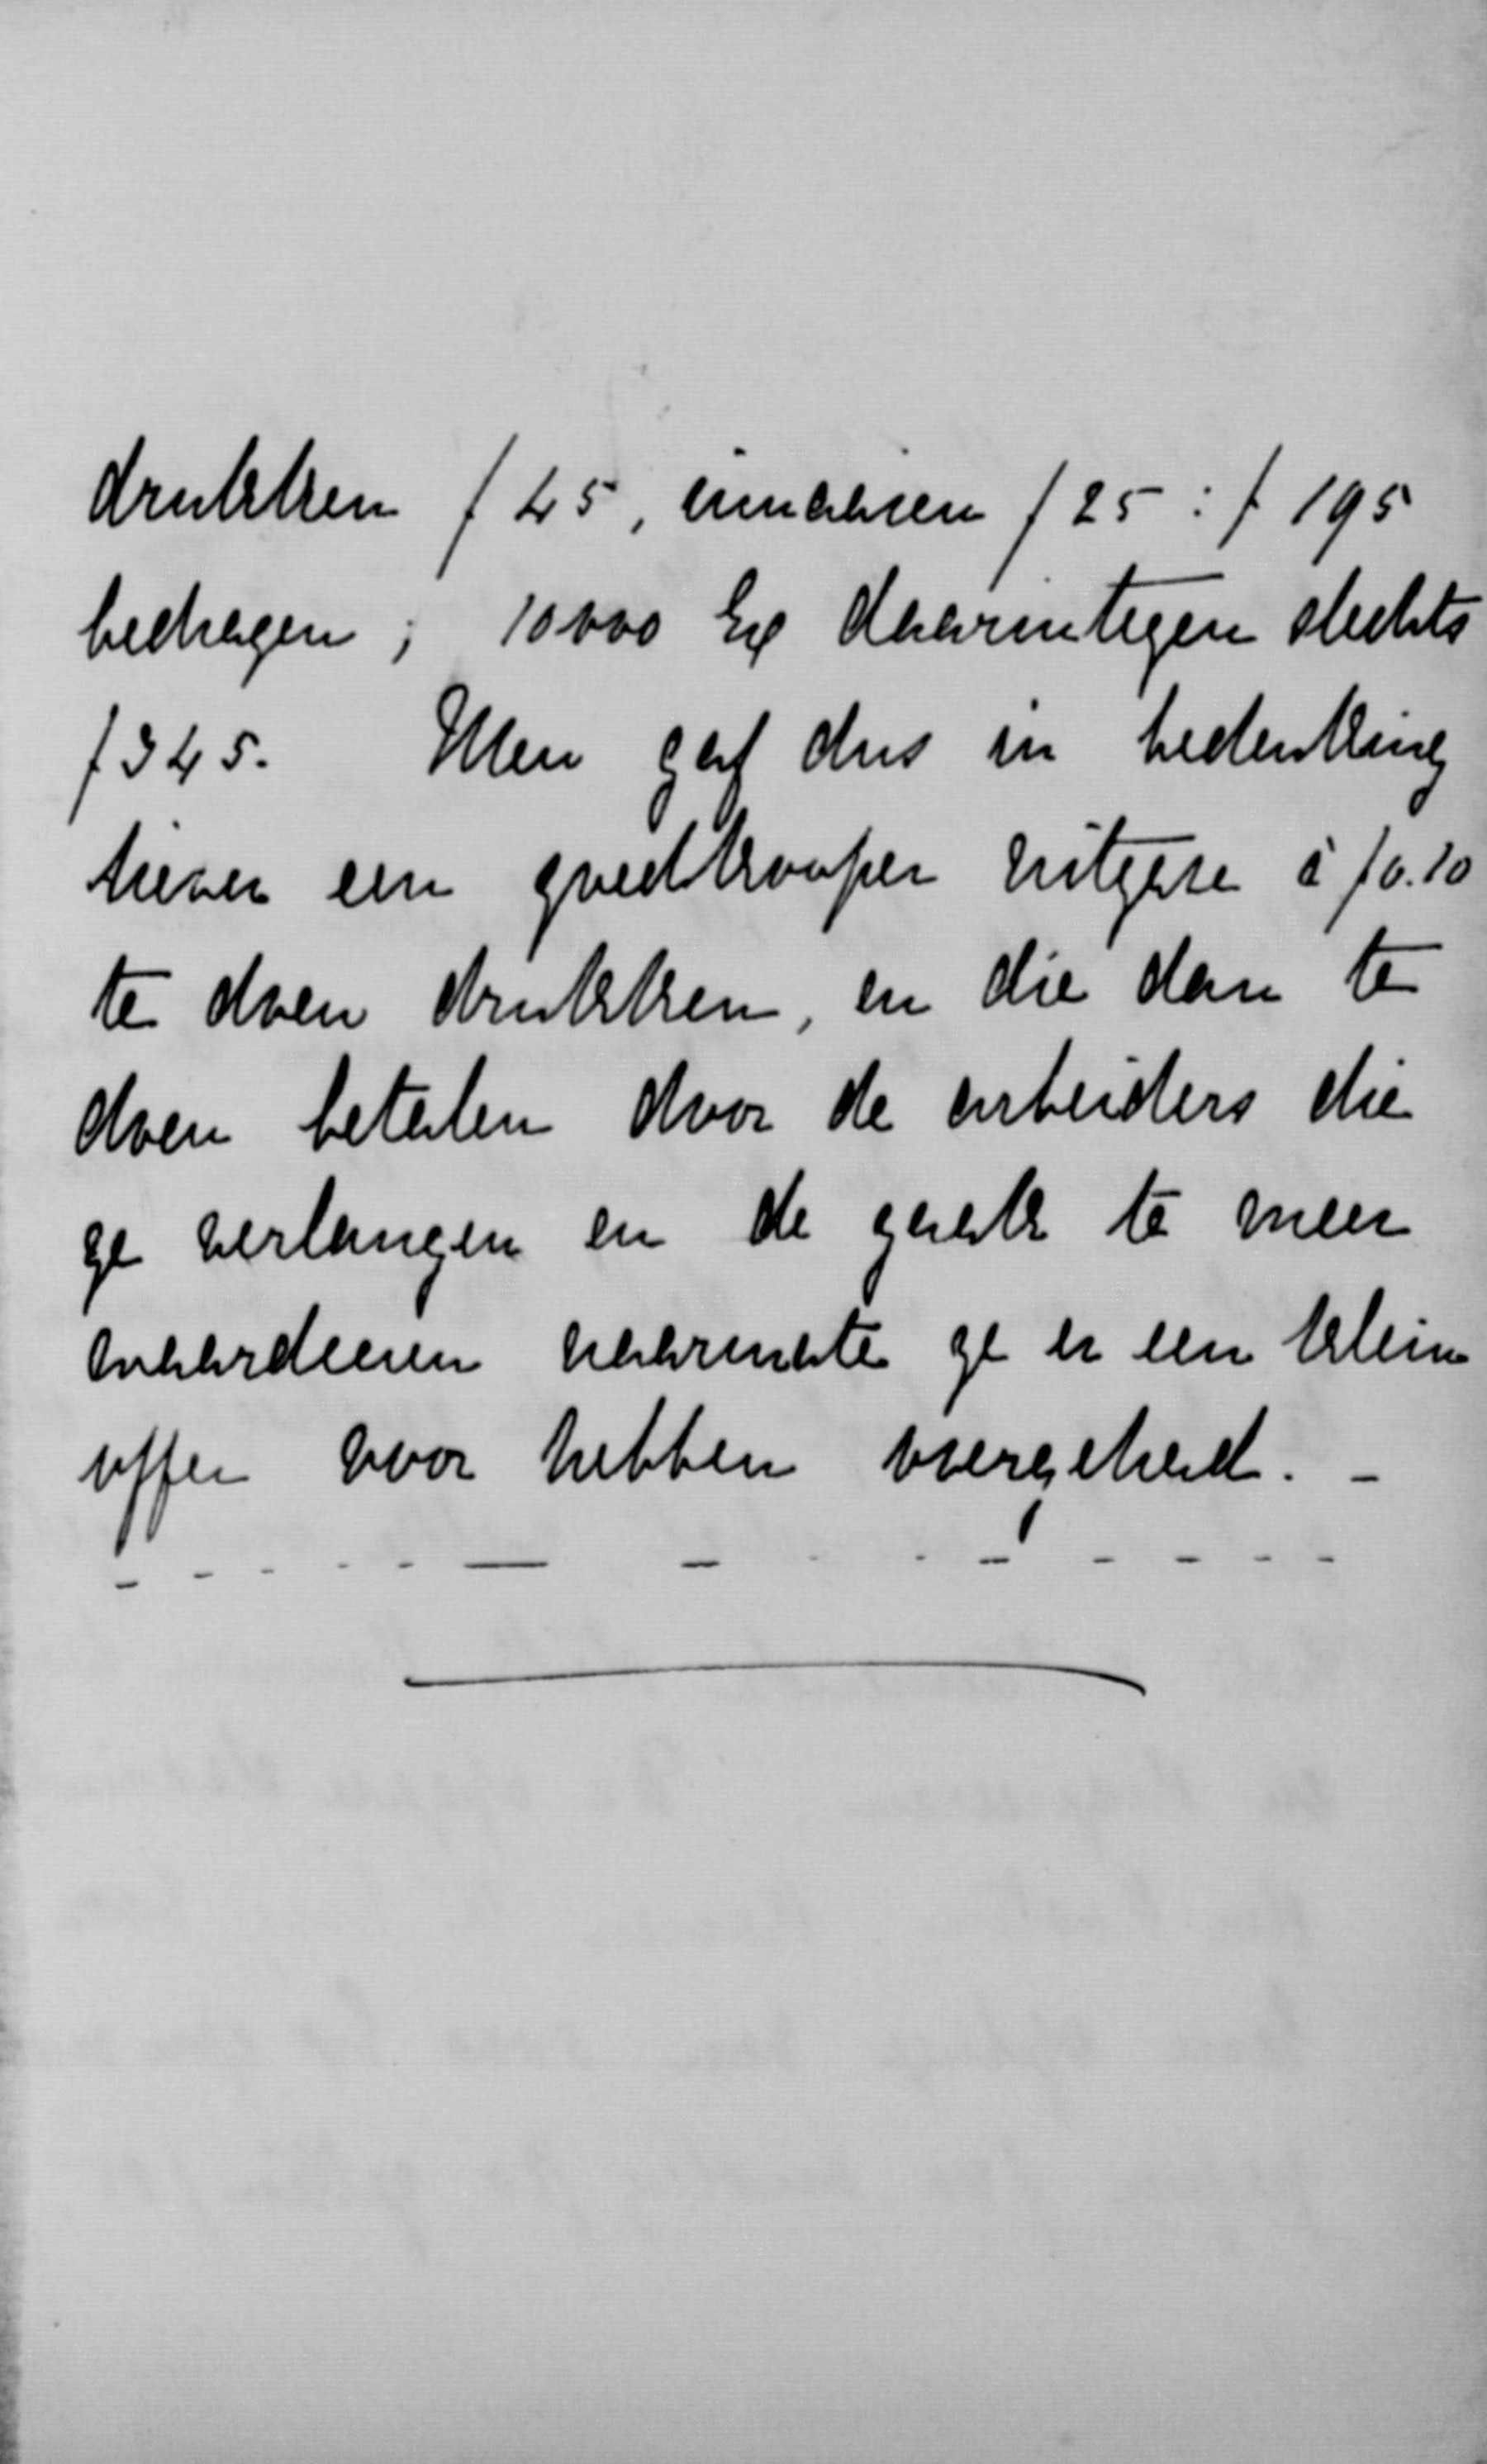 drukken f 45, innaaien f 25 : f 195
bedragen; 10000 Ex daarentegen slechts
f 345. Men gaf dus in bedenking
liever een goedkooper uitgave à f 0.10
te doen drukken, en die dan te
doen betalen door de arbeiders die
ze verlangen en de zaak te meer
waardeeren naarmate ze er een klein
offer voor hebben overgehad. -